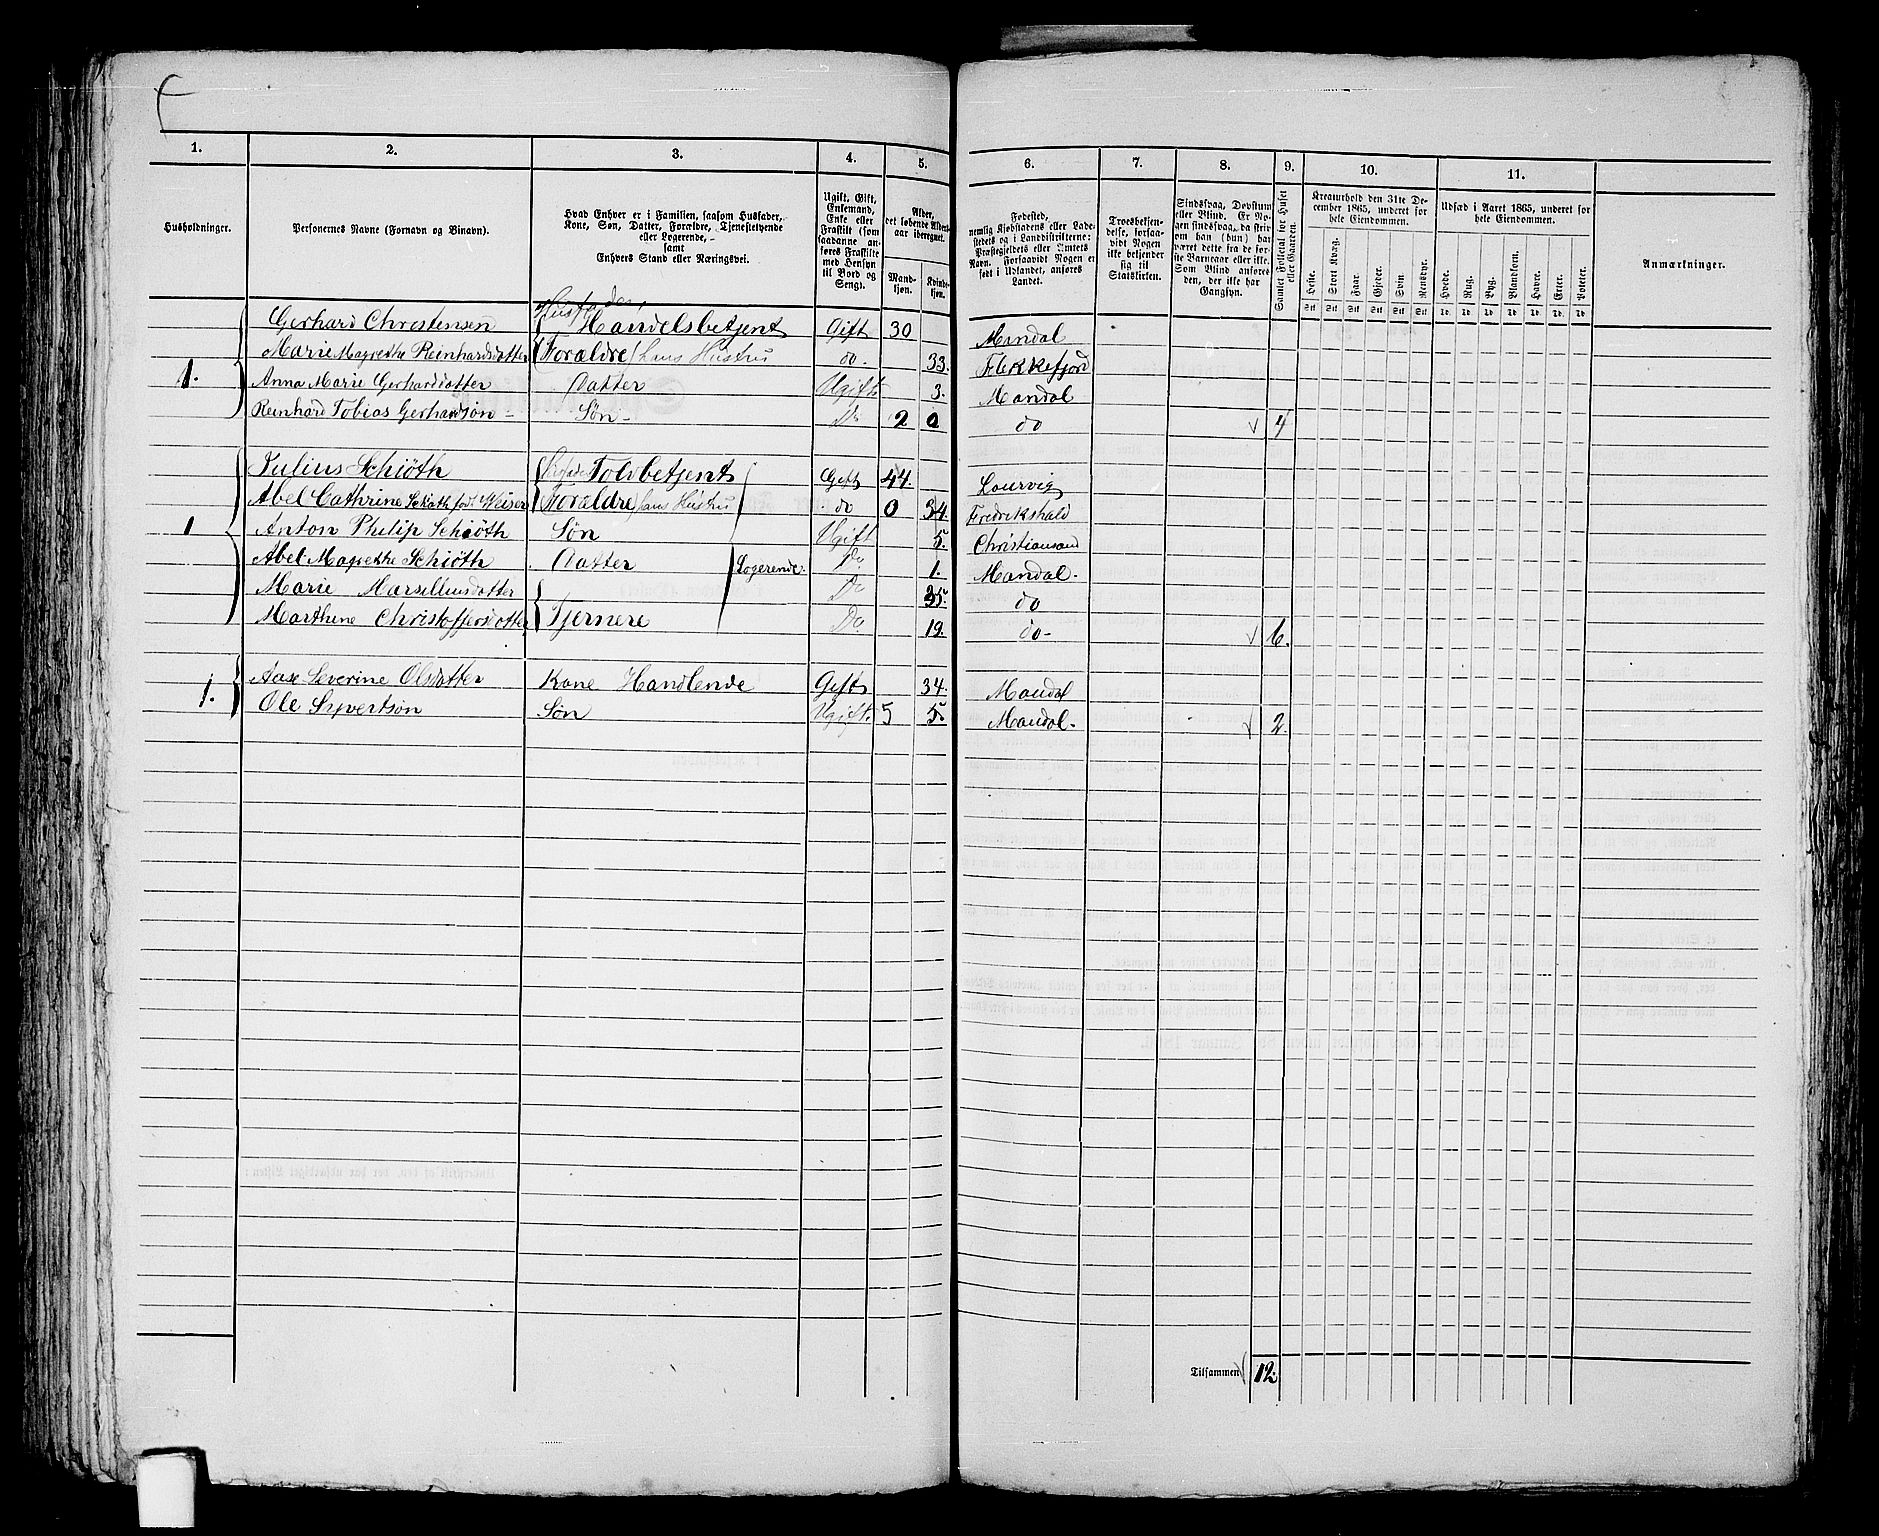 1. 2. 3. 4. 5. 6. 7. 8. 9. 10. 11.
Husholdninger.
Personernes Navne (Fornavn og Binavn).
Hvad Enhver er i Familien, saasom Husfader,
Kone, Søn, Datter, Forældre, Tjenestetyende
eller Logerende,
samt
Enhvers Stand eller Næringsvei.
Ugift, Gift,
Enkemand,
Enke eller
Fraskilt (som
saadanne an-
føres Fraskilte
med Hensyn
til Bord og
Seng).
Alder,
det løbende Alders-
aar iberegnet.
Mand-
kjøn.
Kvinde-
kjøn.
Fødested,
nemlig Kjøbstadens eller La-
destedets og i Landdistrikterne:
Præstegjeldets eller Amtets
Navn. Forsaavidt Nogen er
født i Udlandet, anføres
Landet.
Troesbekjen-
delse, forsaa-
vidt Nogen
ikke bekjender
sig til
Statskirken.
Sindssvag, Døvstum
eller Blind. Er No-
gen sindssvag, da skriv
om han (hun) har
været dette fra de før-
ste Barneaar eller ikke.
Som Blind anføres
den, der ikke har
Gangsyn.
Samlet Folketal for Huset
eller Gaarden.
Kreaturhold den 31te De-
cember 1865, underet for
hele Eiendommen.
Heste. Stort Kvæg. Faar. Gjeder. Svin. Rensdyr.
Udsæd i Aaret 1865, underet for
hele Eiendommen.
Hvede. Rug. Byg. Blandkorn. Havre. Erter. Poteter.
Anmærkninger.
Husfader
Gerhard Christensen Handelsbetjent Gift 30 Mandal
Marie Magrethe Reinhardsdatter (Forældre) hans Hustru do. 33. Flekkefjord
1. Anna Marie Gerhardsdatter Datter Ugift 3. Mandal
Reinhard Tobias Gerhardsøn - Søn - Do 2 0 do 4
Julius Schiøth Toldbetjent Gift 44. Lourvig
Abel Cathrine Schiøth fød Weisen (Forældre) hans Hustru do 0 34. Fredrikshald
1 Anton Philip Schiøth Søn Ugift 5. Christiansand
Abel Magrethe Schiøth Datter Logerende. Do 1. Mandal.
Marie Marselliusdatter Do 35. do
Marthine Christoffersdatter Tjernere Do. 19. do- 6.
Aase Severine Olsdatter Kone Handlende Gift 34. Mandal
1. Ole Syvertsøn Søn Ugift. 5 5. Mandal. 2.
Tilsammen 12.